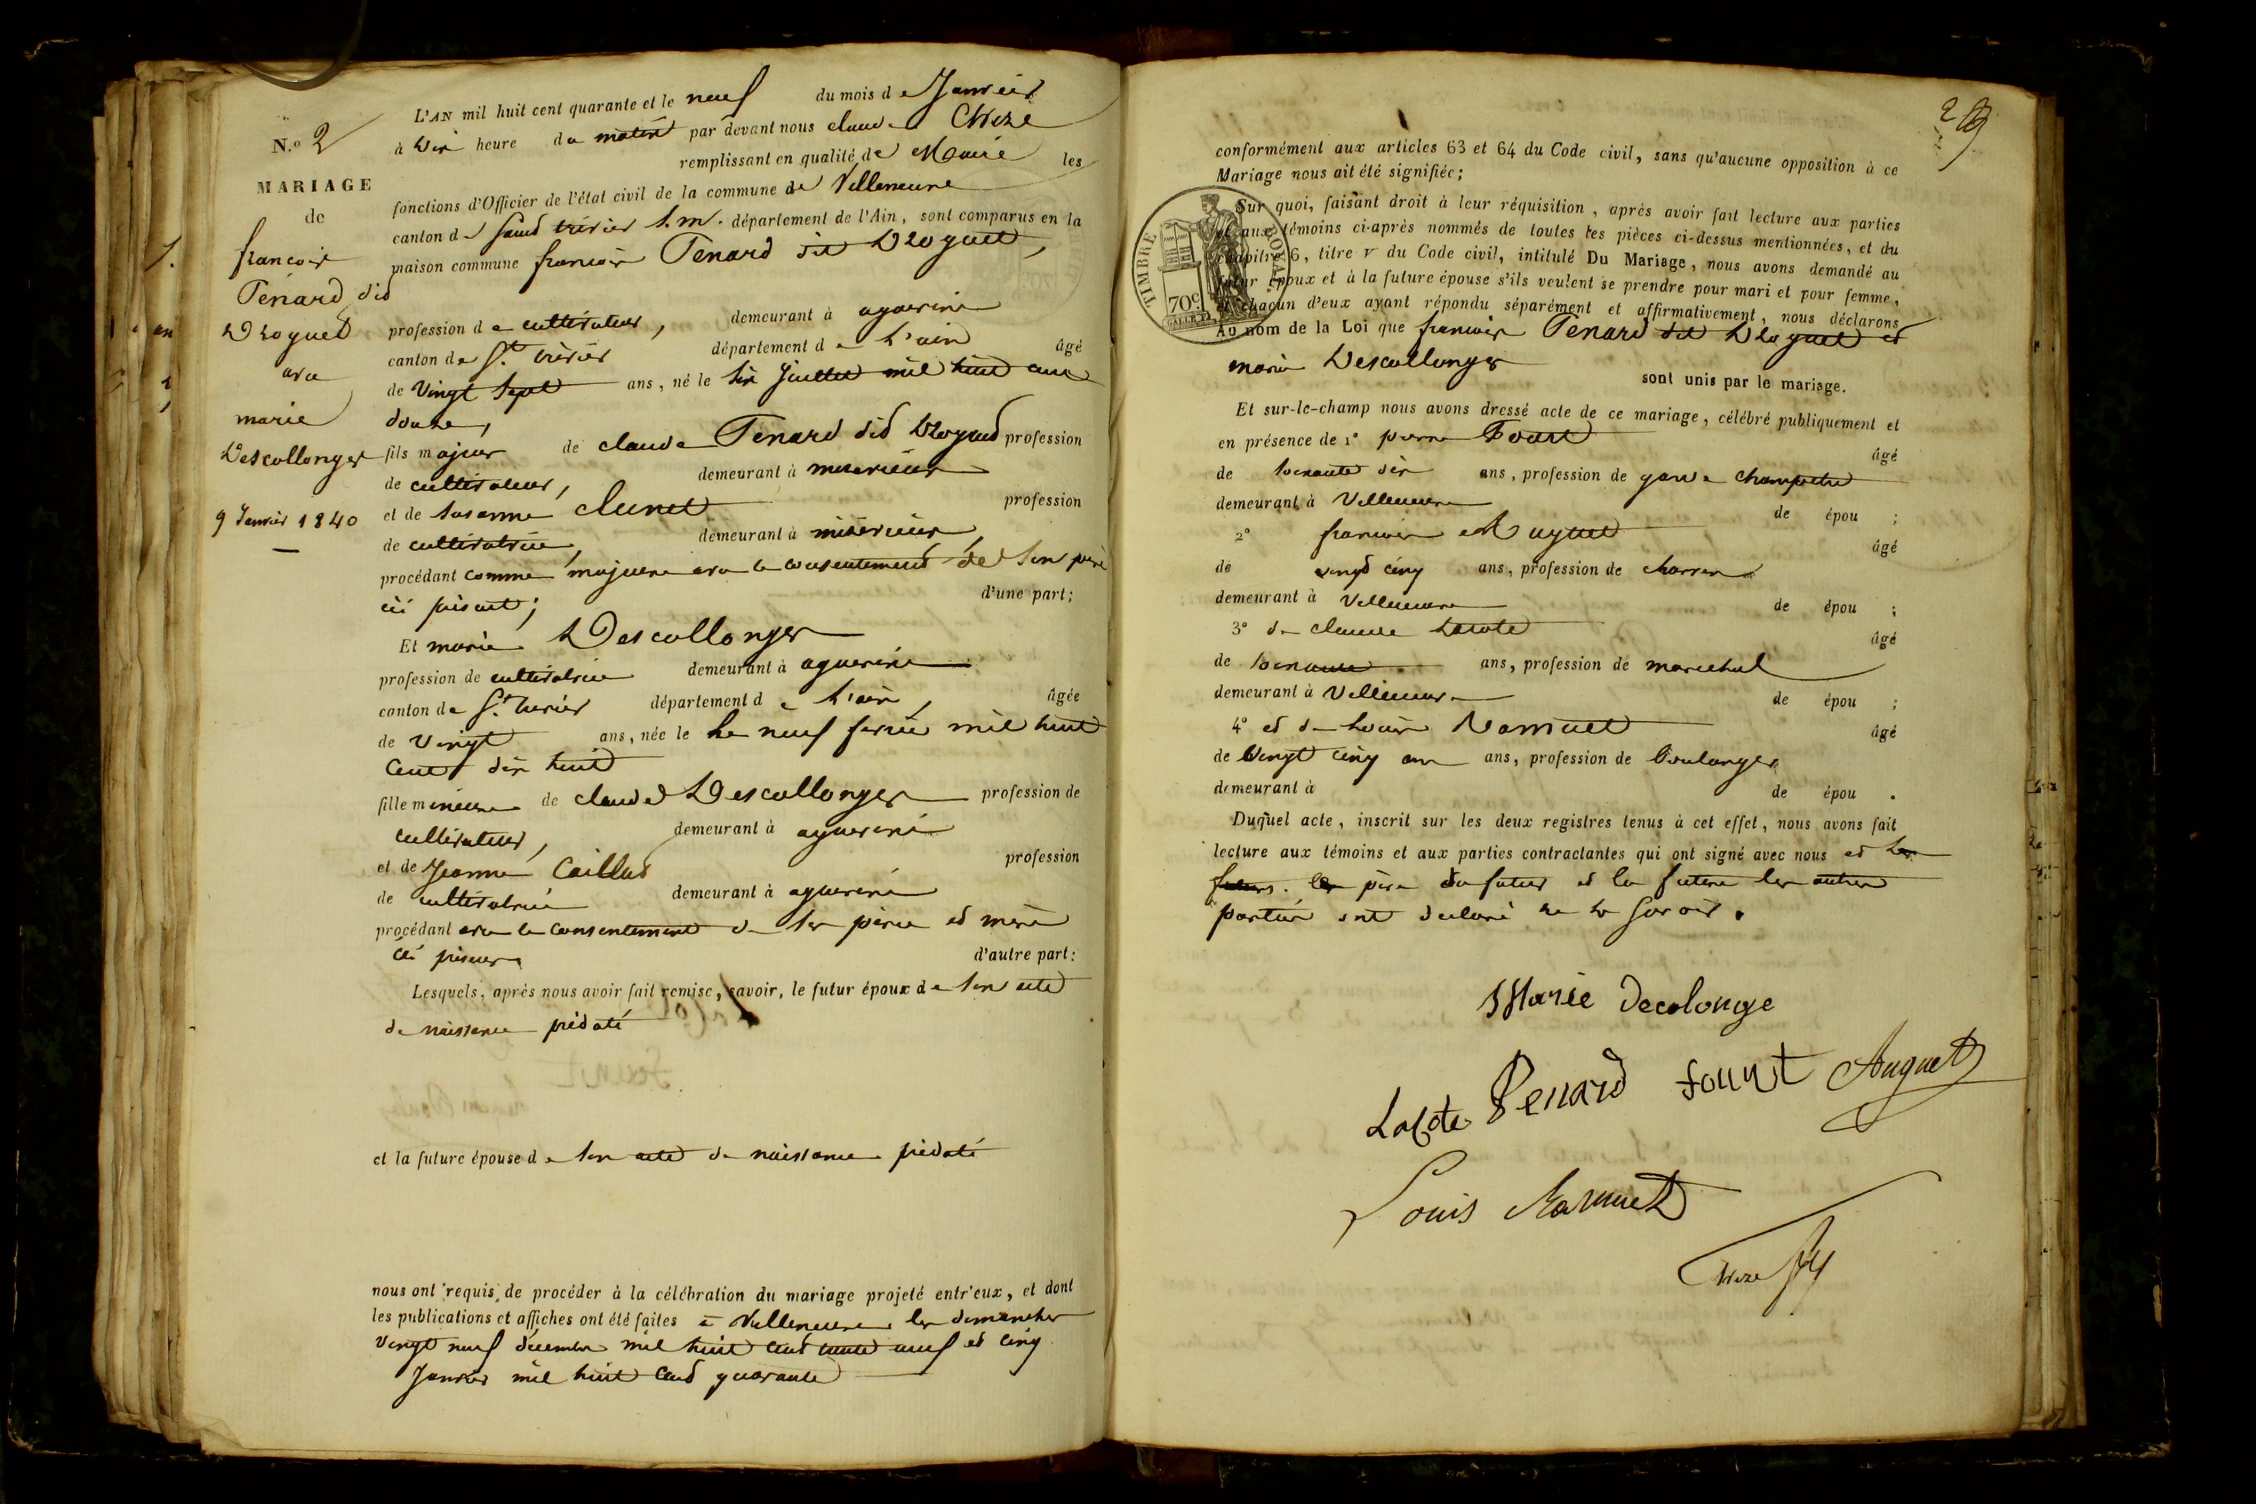 N.º 2
MARIAGE
de
francois
Penard dit
Droguet
avec
marie
Descollonges
9 Janvier 1840
L'AN mil huit cent quarante et le neuf du mois de Janvier
à dix heure du matin par devant nous claude Chize
remplissant en qualité de Maire les
fonctions d'Officier de l'état civil de la commune de Villeneuve
canton de Saint trivier s. m. département de l'Ain, sont comparus en la
maison commune francois Penard dit Droguet,
profession de cultivateur, demeurant à agnereins
canton de St. trivier département de l'ain âgé
de Vingt Sept ans, né le six Juillet mil huit cent
douze,
fils majeur de claude Penard dit Droguet profession
de cultivateur, demeurant à miserieux
et de Susanne Clunet profession
de cultivatrice, demeurant à misérieux,
procédant comme majeur avec le consentement de son père
ici présent; d'une part;
Et marie Descollonges
profession de cultivatrice demeurant à agnereins
canton de St. trivier département de l'ain, âgée
de Vingt ans, née le le neuf fevrier mil huit
cent dix huit
fille mineure de claude Descollonges profession de
cultivateur, demeurant à agnereins
et de Jeanne Caillat profession
de cultivatrice demeurant à agnereins
procédant avec le consentement de ses père et mère
ici présents d'autre part:
Lesquels, après nous avoir fait remise, savoir, le futur époux de son acte
de naissance prédaté
et la future épouse de son acte de naissance prédaté
nous ont requis de procéder à la célébration du mariage projeté entr'eux, et dont
les publications et affiches ont été faites à Villeneuve les dimanches
Vingt neuf décembre mil huit cent trente neuf et cinq
Janvier mil huit cent quarante
conformément aux articles 63 et 64 du Code civil, sans qu'aucune opposition à ce
Mariage nous ait été signifiée;
TIMBRE ROYAL
70c
Sur quoi, faisant droit à leur réquisition, après avoir fait lecture aux parties
et aux témoins ci-après nommés de toutes les pièces ci-dessus mentionnées, et du
chapitre 6, titre V du Code civil, intitulé Du Mariage, nous avons demandé au
futur époux et à la future épouse s'ils veulent se prendre pour mari et pour femme,
et chacun d'eux ayant répondu séparément et affirmativement, nous déclarons
Au nom de la Loi que francois Penard dit Droguet et
marie Descollonges sont unis par le mariage.
Et sur-le-champ nous avons dressé acte de ce mariage, célébré publiquement et
en présence de 1º pierre âgé
de soixante dix ans, profession de garde champetre
demeurant à Villeneuve de épou ;
2º francois Auguet âgé
de vingt cinq ans, profession de charron
demeurant à Villeneuve de épou ;
3º de claude Lacote âgé
de soixante ans, profession de marechal
demeurant à Villeneuve de épou ;
4º et de Louis âgé
de Vingt cinq ans, profession de boulanger
demeurant à de épou .
Duquel acte, inscrit sur les deux registres tenus à cet effet, nous avons fait
lecture aux témoins et aux parties contractantes qui ont signé avec nous et
père du futur et la future les autres
parties ont declaré ne le savoir.
Marie Decolonge
Lacote Penard Auguet
Louis
Chize